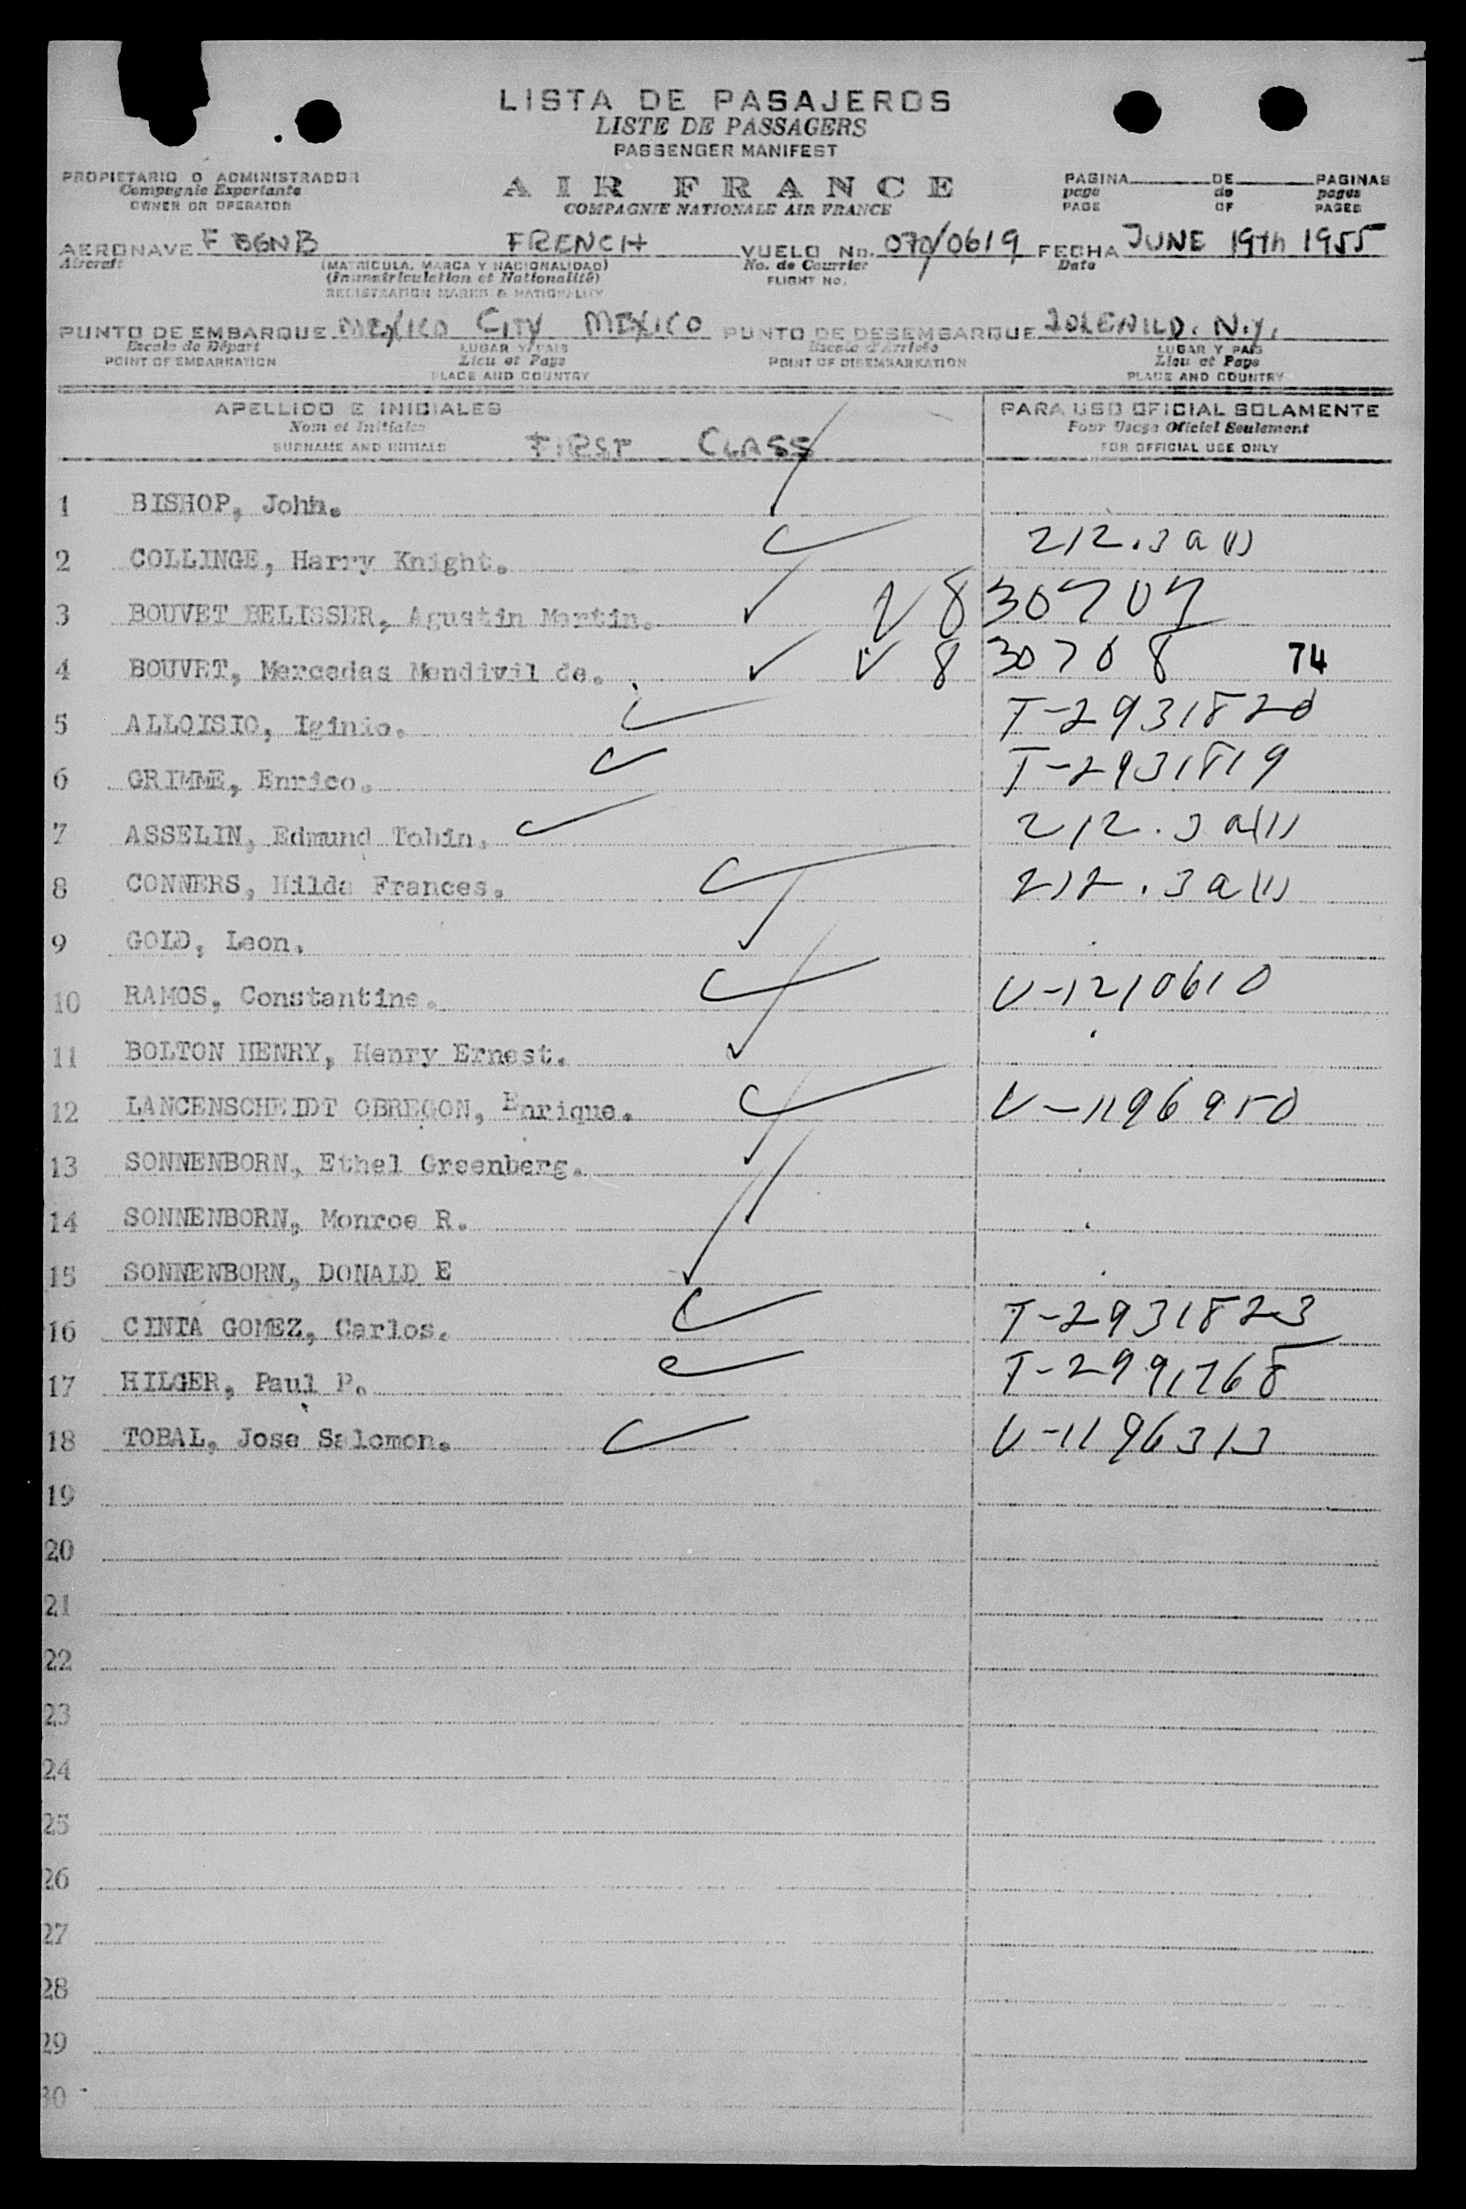 LISTA DE PASAJEROS
LISTE DE PASSAGERS
PASSENGER MANIFEST
PROPIETARIO O ADMINISTRADOR
Compagnie Exportante
OWNER OR OPERATOR
AIR FRANCE
COMPAGNIE NATIONALE AIR FRANCE
PAGINA DE PAGINAS
page de pages
PAGE OF PAGES
AERONAVE F BGNB FRENCH VUELO No. 070/0619 FECHA JUNE 19th 1955
Aircraft (MATRICULA, MARCA Y NACIONALIDAD) No. de Courrier Date
(Immatriculation et Nationalité) FLIGHT NO.
REGISTRATION MARKS & NATIONALITY
PUNTO DE EMBARQUE MEXICO CITY MEXICO PUNTO DE DESEMBARQUE IDLEWILD. N.Y.
Escale de Départ LUGAR Y PAIS Escale d'Arrivée LUGAR Y PAIS
POINT OF EMBARKATION Lieu et Pays POINT OF DISEMBARKATION Lieu et Pays
PLACE AND COUNTRY PLACE AND COUNTRY
APELLIDO E INICIALES PARA USO OFICIAL SOLAMENTE
Nom et Initiales Pour Usage Officiel Seulement
SURNAME AND INITIALS FIRST CLASS FOR OFFICIAL USE ONLY
1 BISHOP, John.
2 COLLINGE, Harry Knight. 212.3a(1)
3 BOUVET BELISSER, Agustin Martin. V 830707
4 BOUVET, Mercedes Mendivil de. V 830708 74
5 ALLOISIO, Iginio. T-2931820
6 GRIMME, Enrico. T-2931819
7 ASSELIN, Edmund Tobin. 212.3a(1)
8 CONNERS, Hilda Frances. 212.3a(1)
9 GOLD, Leon.
10 RAMOS, Constantine. V-1210610
11 BOLTON HENRY, Henry Ernest.
12 LANCENSCHEIDT OBREGON, Enrique. V-1196950
13 SONNENBORN, Ethel Greenberg.
14 SONNENBORN, Monroe R.
15 SONNENBORN, DONALD E
16 CINTA GOMEZ, Carlos. T-2931823
17 HILGER, Paul P. T-2991768
18 TOBAL, Jose Salomon. V-1196313
19
20
21
22
23
24
25
26
27
28
29
30